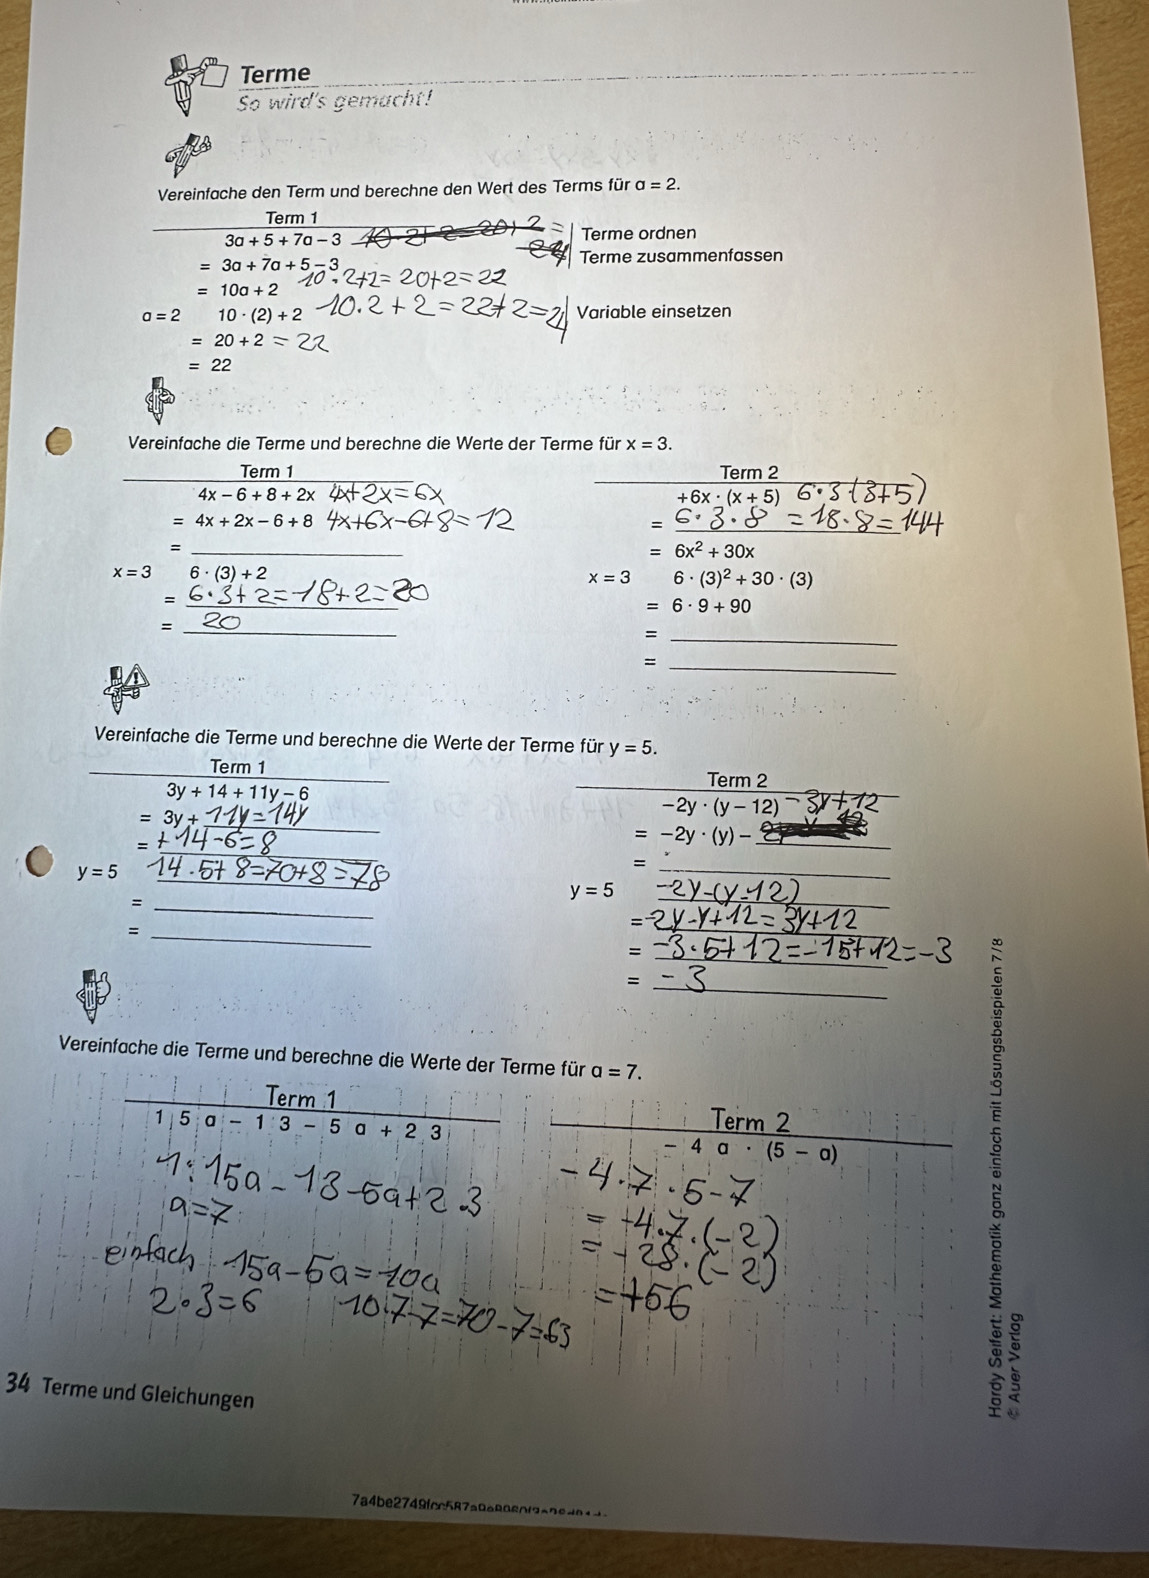 Terme
So wird's gemacht!
Vereinfache den Term und berechne den Wert des Terms für a = 2.
Term 1
3a + 5 + 7a − 3
Terme ordnen
= 3a + 7a + 5 − 3 10·2+2= 20+2=22
Terme zusammenfassen
= 10a + 2
a = 2 10 · (2) + 2 10.2 + 2 = 22+2=24
Variable einsetzen
= 20 + 2 = 22
= 22
Vereinfache die Terme und berechne die Werte der Terme für x = 3.
Term 1
4x − 6 + 8 + 2x 4x+2x=6x
= 4x + 2x − 6 + 8 4x+6x-6+8=12
=
x = 3 6 · (3) + 2
= 6·3+2=18+2=20
= 20
Term 2
+6x · (x + 5) 6·3(3+5)
= 6·3·8 =18·8=144
= 6x² + 30x
x = 3 6 · (3)² + 30 · (3)
= 6 · 9 + 90
=
=
Vereinfache die Terme und berechne die Werte der Terme für y = 5.
Term 1
3y + 14 + 11y − 6
= 3y + 11y=14y
= +14-6=8
y = 5 14.5+8=70+8=78
=
=
Term 2
−2y · (y − 12) -3y+12
= −2y · (y) −
=
y = 5 -2y-(y-12)
= -2y-y+12=3y+12
= -3·5+12=-15+12=-3
= -3
Vereinfache die Terme und berechne die Werte der Terme für a = 7.
Term 1
15a − 13 − 5a + 23
1: 15a-13-5a+2.3
a=7
einfach 15a-5a=10a
2·3=6 10.7-7=70-7=63
Term 2
−4a · (5 − a)
-4.7.5-7
= -4.7.(-2)
= -28.(-2)
= +56
34 Terme und Gleichungen
Hardy Seifert: Mathematik ganz einfach mit Lösungsbeispielen 7/8
© Auer Verlag